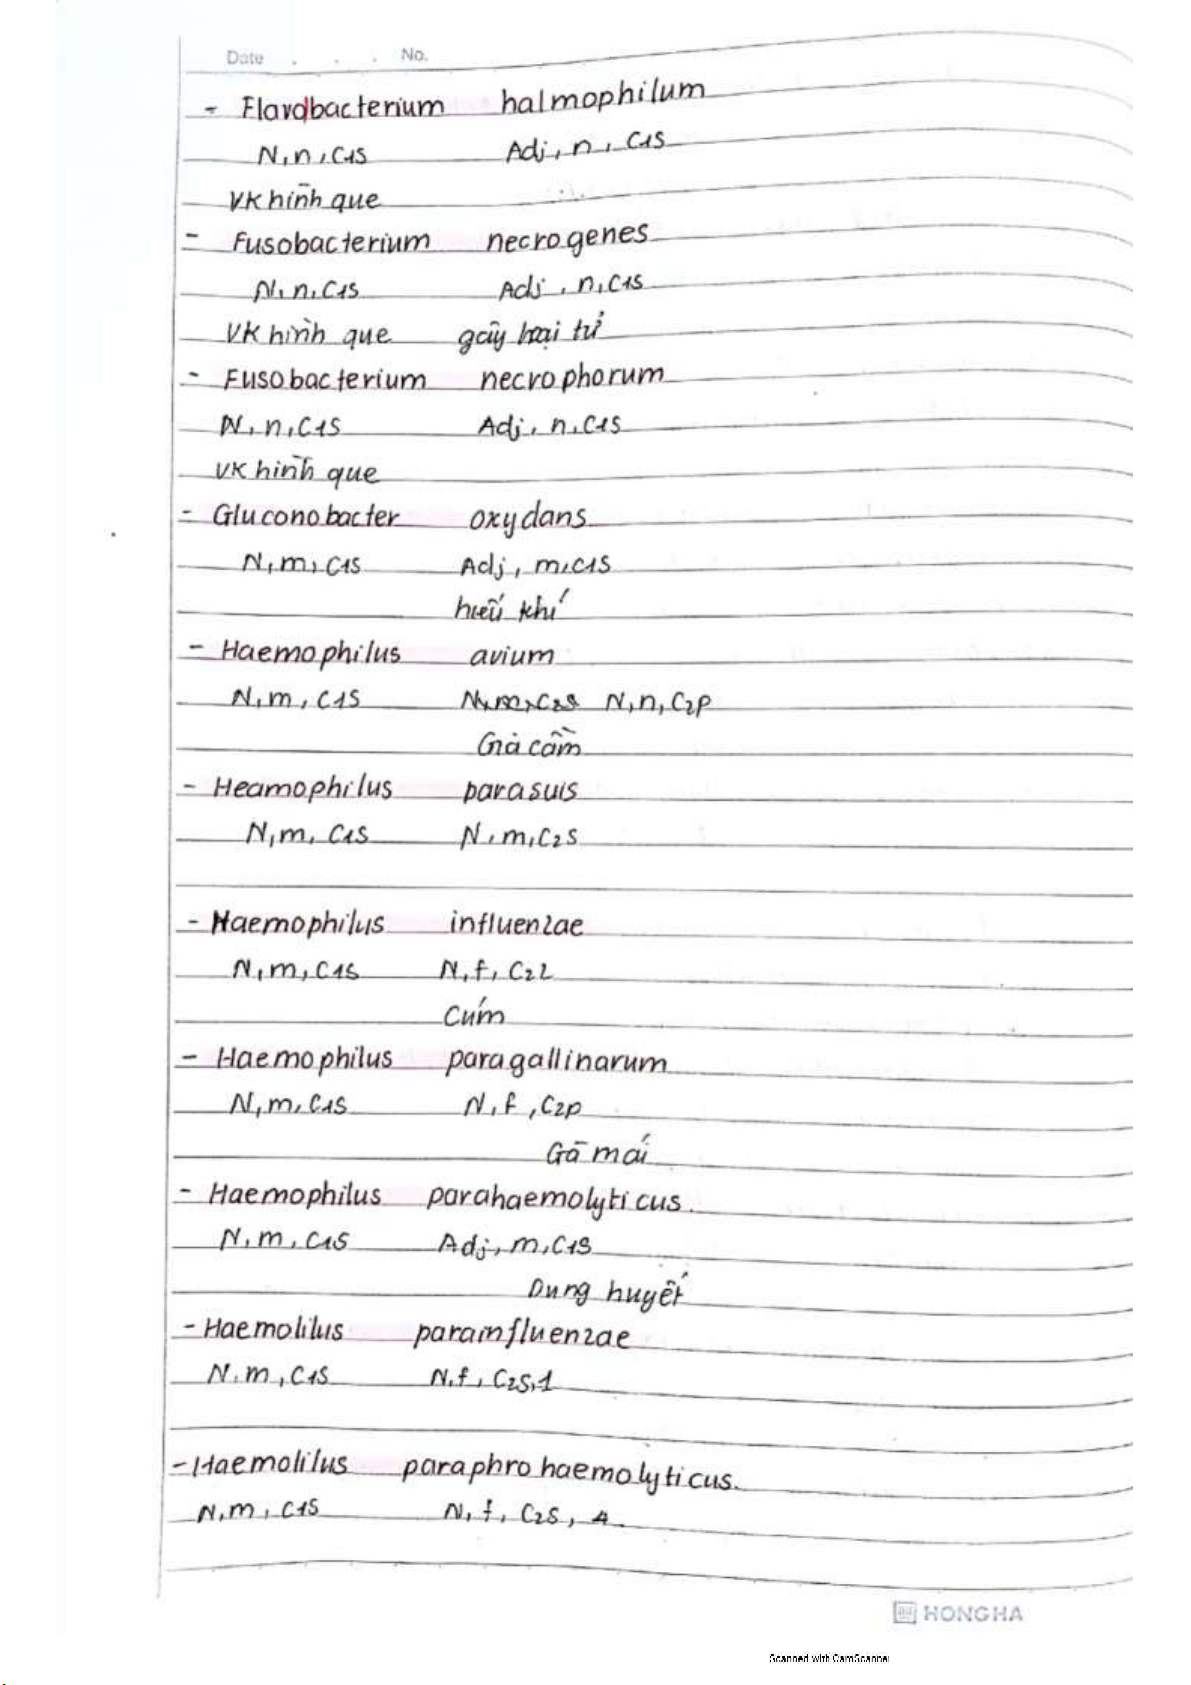 Date . . . No.
- Flavobacterium halmophilum
N, n, C1S Adj, n, C1S
VK hình que
- Fusobacterium necrogenes
N, n, C1S Adj, n, C1S
VK hình que gây hoại tử
- Fusobacterium necrophorum
N, n, C1S Adj, n, C1S
VK hình que
- Gluconobacter oxydans
N, m, C1S Adj, m, C1S
hiếu khí
- Haemophilus avium
N, m, C1S N, m, C2S N, n, C2P
Gia cầm
- Heamophilus parasuis
N, m, C1S N, m, C2S
- Haemophilus influenzae
N, m, C1S N, f, C22
Cúm
- Haemophilus paragallinarum
N, m, C1S N, f, C2P
Gà mái
- Haemophilus parahaemolyticus.
N, m, C1S Adj, m, C1S
Dung huyết
- Haemolilus parainfluenzae
N, m, C1S N, f, C2S, 1
- Haemolilus paraphrohaemolyticus.
N, m, C1S N, f, C2S, 1
HONGHA
Scanned with CamScanner